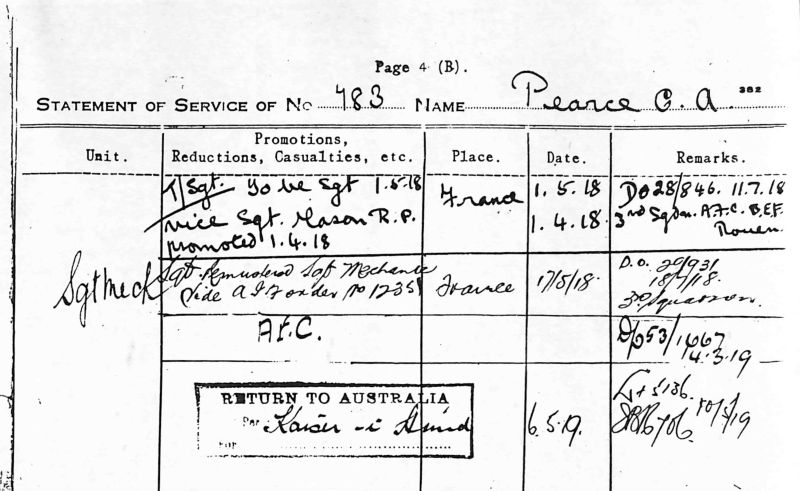 Page 4 (B).
382
STATEMENT OF SERVICE OF No 783 NAME Pearce C. A.
Unit.
Promotions,
Reductions, Casualties, etc.
Place.
Date.
Remarks.
T/Sgt. To be Sgt 1.5.18
France
1.5.18
DO 28/846. 11.7.18
vice Sgt. Mason R.P.
1.4.18.
3rd Sqdn. A.F.C. B.E.F.
promoted 1.4.18
Rouen.
Sgt Mech
Sgt. Remustered Sgt Mechanic
France
17/5/18.
D.O. 29/931
Vide A.I.F order No 1235
18/7/18.
3rd Squadron.
A.F.C.
4.3.19
RETURN TO AUSTRALIA
Per Kaiser-i-Hind
6.5.19.
FOR